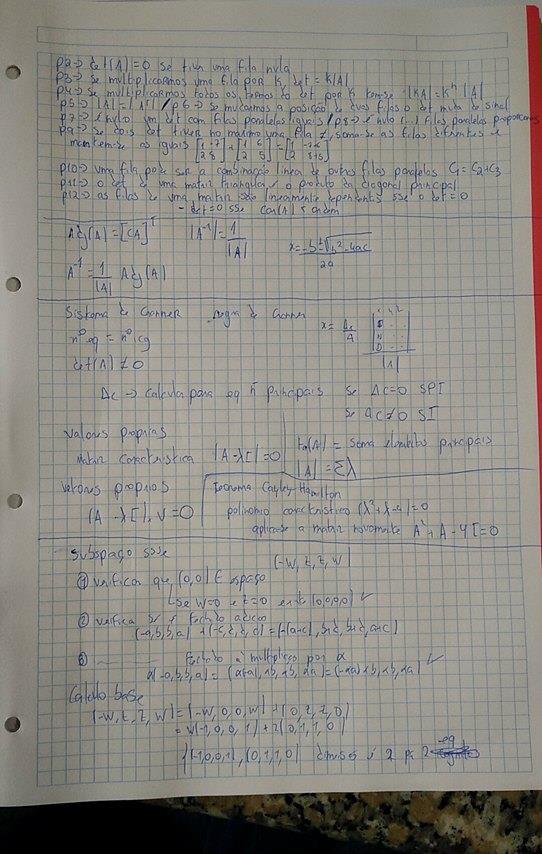 p2→ det(A)=0 se tiver uma fila nula
p3→ se multiplicarmos uma fila por K det = K|A|
p4→ se multiplicarmos todos os termos do det por K tem-se |KA| = Kⁿ |A|
p5→ |A| = |Aᵀ| / p6→ se mudarmos a posição de duas filas o det muda de sinal
p7→ é nulo um det com filas paralelas iguais / p8→ é nulo (...) filas paralelas proporcionais
p9→ se dois det tiver no máximo uma fila ≠, soma-se as filas diferentes e
mantem-se as iguais
p10→ uma fila pode ser a combinação linear de outras filas paralelas C₁=C₂+C₃
p11→ o det de uma matriz triangular é o produto da diagonal principal
p12→ as filas de uma matriz são linearmente dependentes sse o det = 0
- det=0 sse Car(A) < ordem
Adj(A) = [CA]ᵀ |A⁻¹| = 1/|A| x = -b±√b²-4ac/2a
A⁻¹ = 1/|A| Adj(A)
Sistema de Cramer regra de Cramer
nº eq = nº icg
det(A) ≠ 0 |A|
Δc → calcula para eq ñ principais se Δc=0 SPI
se Δc≠0 SI
valores proprios
Matriz Caracteristica |A-λI|=0 = soma elementos principais
vetores proprios Teorema Cayley-Hamilton
(A-λI).v=0 polinomio caracteristico
aplica-se a matriz novamente A²+A-4I=0
Subespaço sse (-w,z,z,w)
① verificar que (0,0) ∈ espaço
se w=0 e z=0 existe (0,0,0,0) ✓
② verifica se é fechado adição
(-a,b,b,a) + (-c,d,d,c) = (-(a+c), b+d, b+d, a+c)
③ ——— fechado à multiplicação por α
α(-a,b,b,a) = ✓
Calculo base
(-w,z,z,w) = (-w,0,0,w) + (0,z,z,0)
= w(-1,0,0,1) + z(0,1,1,0)
(-1,0,0,1), (0,1,1,0) dimensão é 2